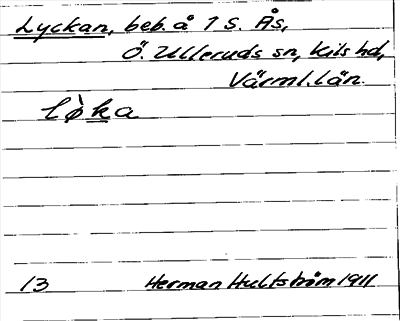 Lyckan, beb. å 1 S. Ås,
Ö. Ulleruds sn, Kils hd,
Värml. län.
lø̀ka
13 Herman Hultström 1911